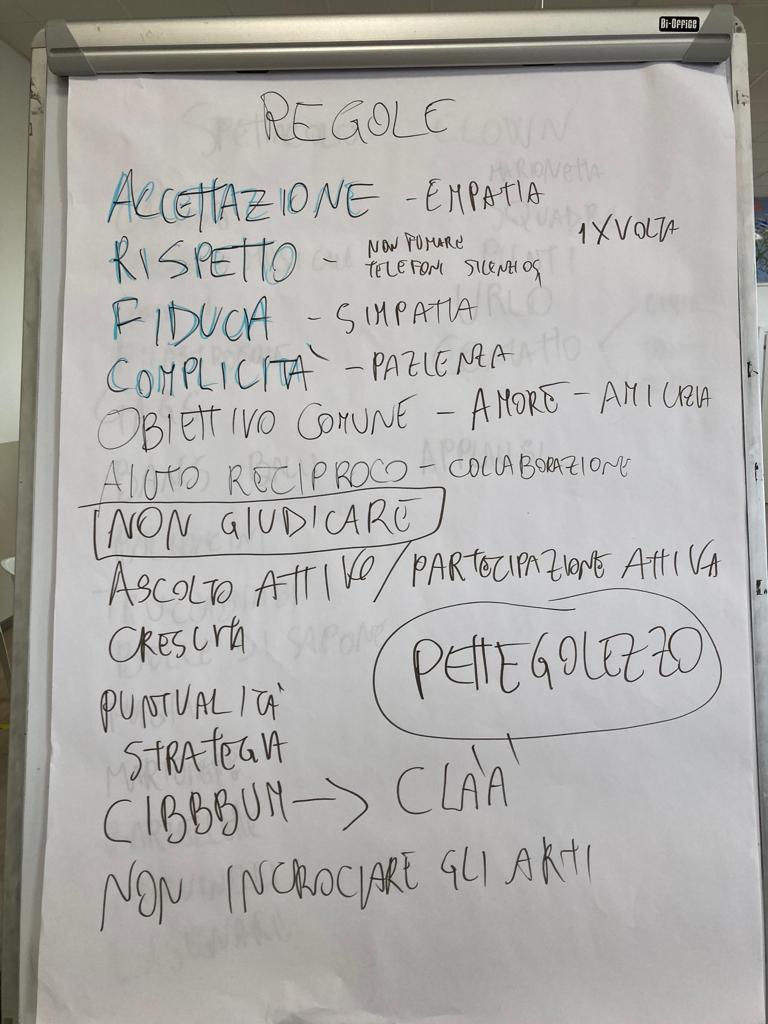 Bi-Office
REGOLE
ACCETTAZIONE - EMPATIA
RISPETTO - NON FUMARE 1 X VOLTA
TELEFONI SILENZIOSI
FIDUCIA - SIMPATIA
COMPLICITÀ - PAZIENZA
OBIETTIVO COMUNE - AMORE - AMICIZIA
AIUTO RECIPROCO - COLLABORAZIONE
NON GIUDICARE
ASCOLTO ATTIVO / PARTECIPAZIONE ATTIVA
CRESCITA
PETTEGOLEZZO
PUNTUALITÀ
STRATEGIA
CIBBBUM → CLÀÀ
NON INCROCIARE GLI ARTI